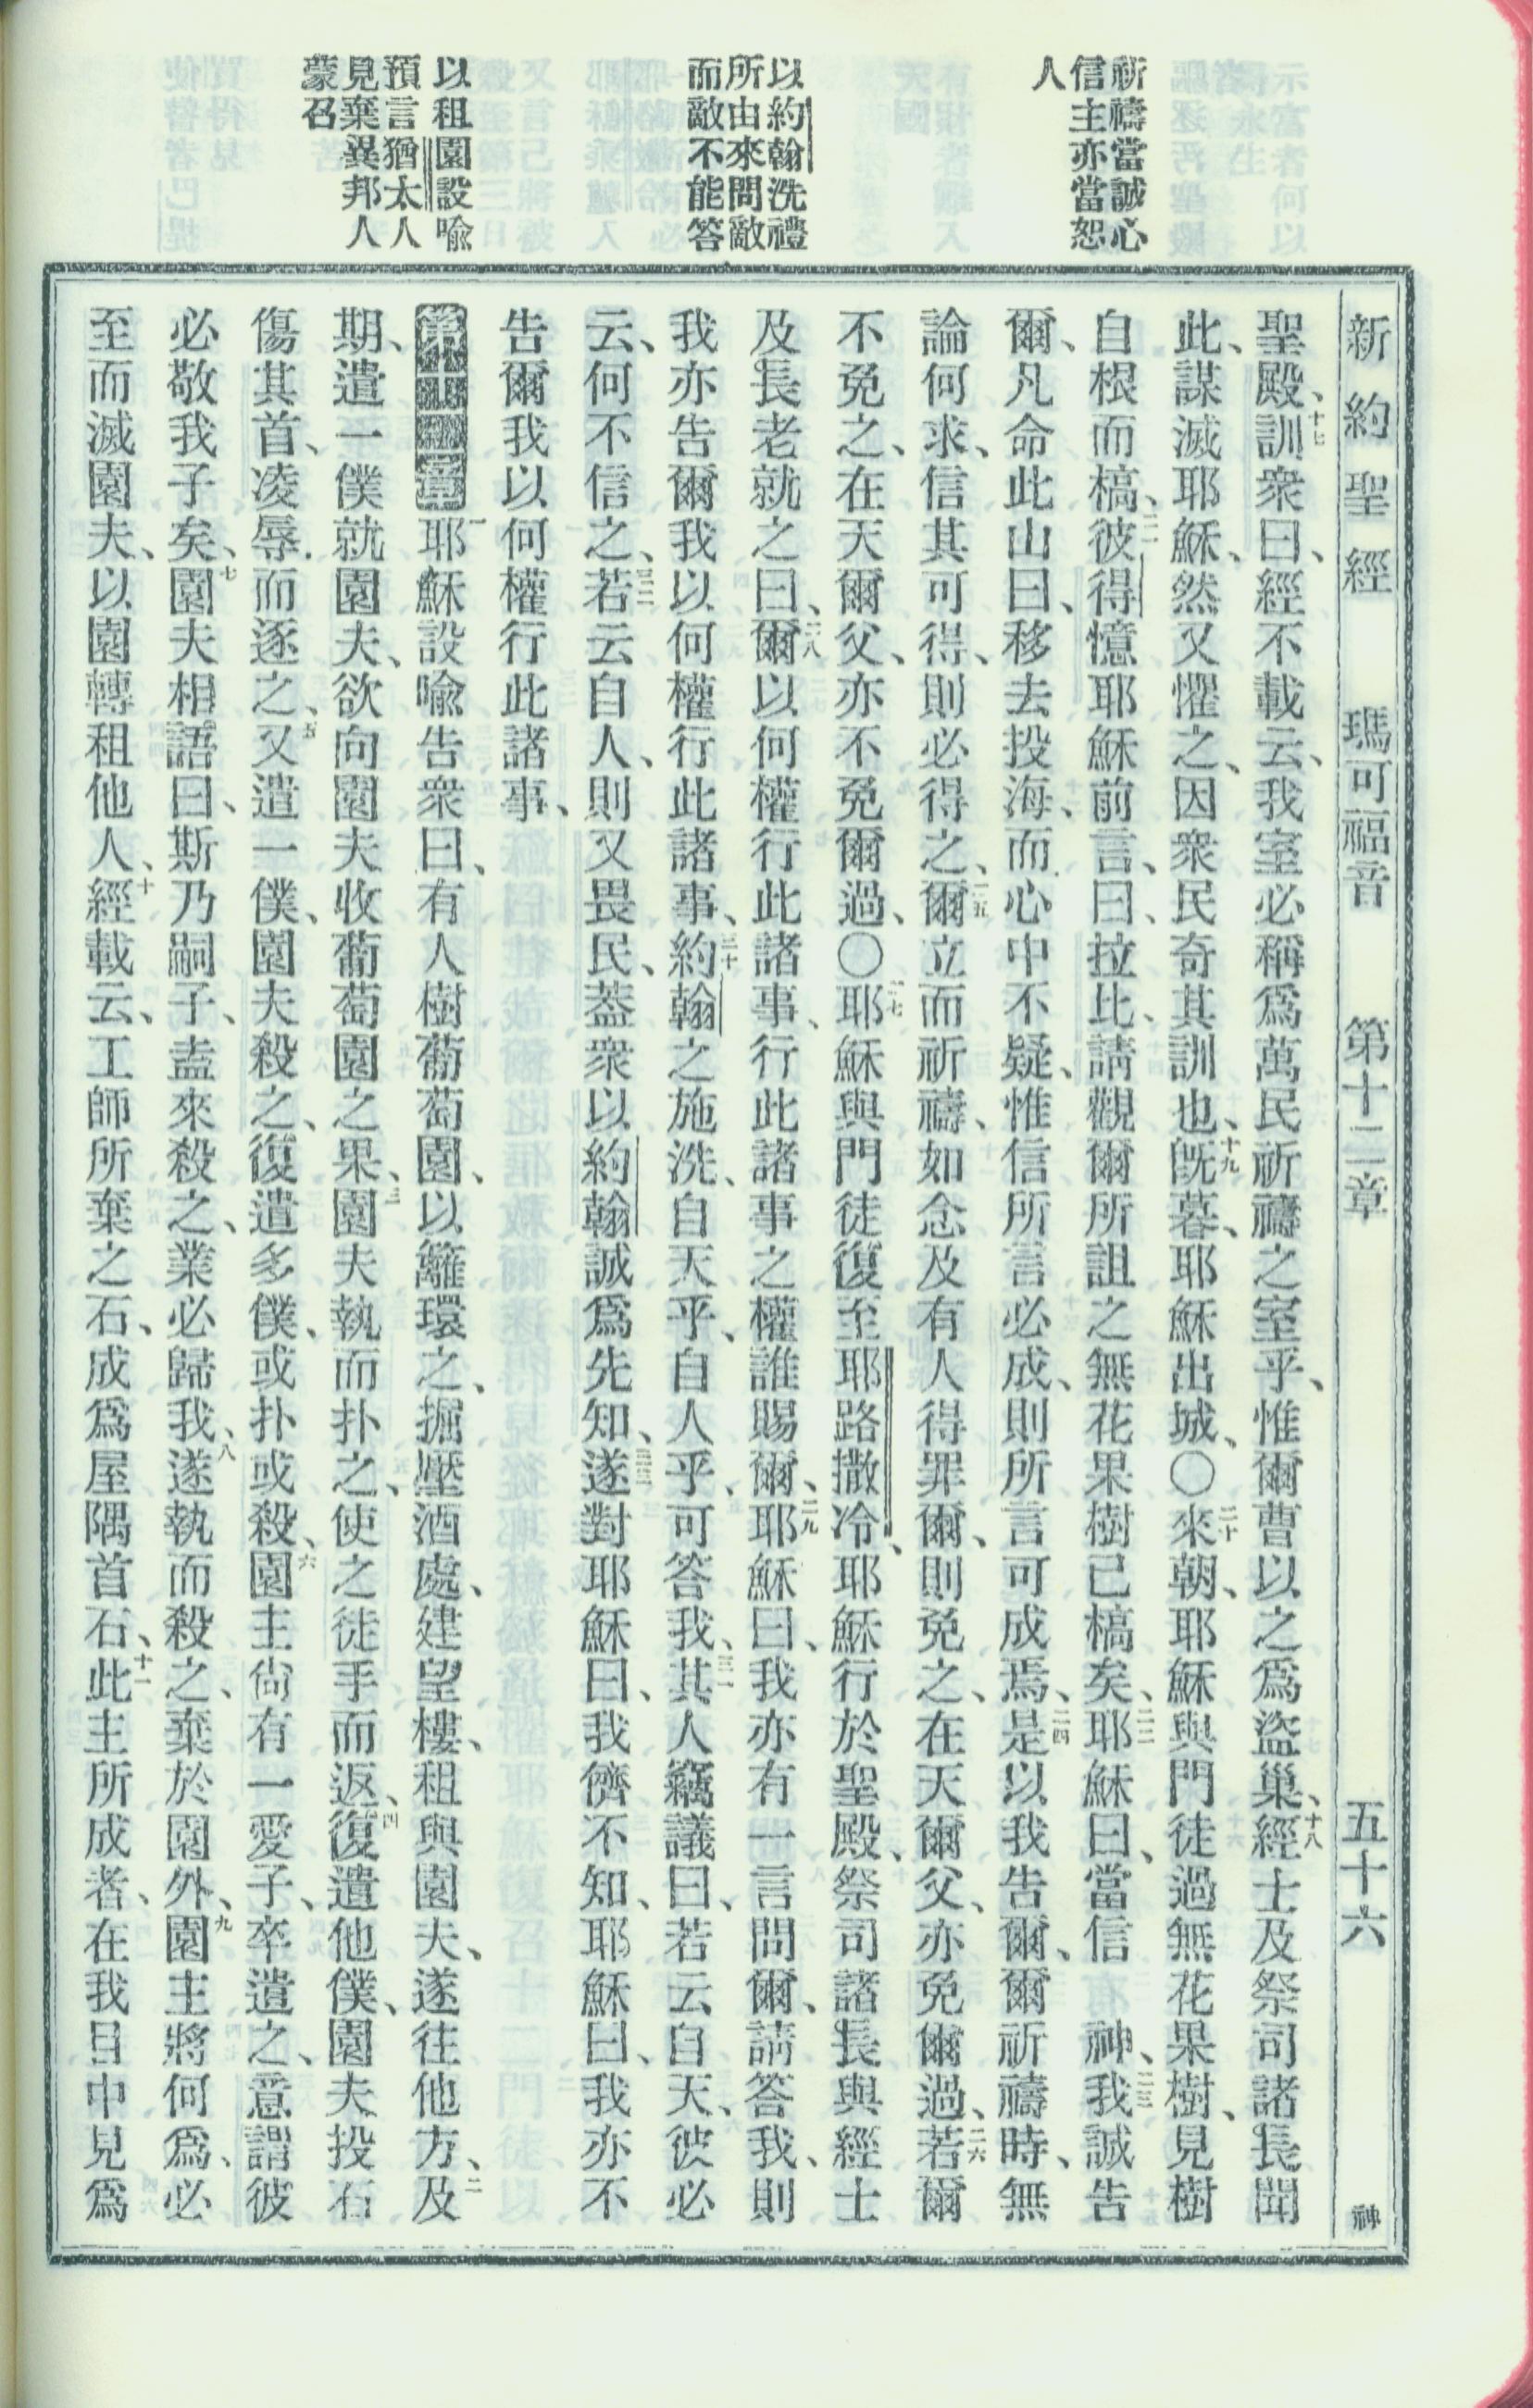 新約聖經 瑪可福音 第十二章 五十六 神
祈禱當誠心
信主亦當恕
人
以約翰洗禮
所由來問敵
而敵不能答
以租園設喻
預言猶太人
見棄異邦人
蒙召
聖殿、十七訓衆曰、經不載云、我室必稱爲萬民祈禱之室乎、惟爾曹以之爲盜巢、十八經士及祭司諸長聞
此、謀滅耶穌、然又懼之、因衆民奇其訓也、十九旣暮、耶穌出城、〇二十來朝、耶穌與門徒過無花果樹、見樹
自根而槁、二一彼得憶耶穌前言、曰、拉比、請觀爾所詛之無花果樹已槁矣、二二耶穌曰、當信 神、二三我誠告
爾、凡命此山曰、移去投海、而心中不疑、惟信所言必成、則所言可成焉、二四是以我告爾、爾祈禱時、無
論何求、信其可得、則必得之、二五爾立而祈禱、如念及有人得罪爾、則免之、在天爾父、亦免爾過、二六若爾
不免之、在天爾父、亦不免爾過、〇二七耶穌與門徒復至耶路撒冷、耶穌行於聖殿、祭司諸長與經士
及長老就之曰、二八爾以何權行此諸事、行此諸事之權誰賜爾、二九耶穌曰、我亦有一言問爾、請答我、則
我亦告爾我以何權行此諸事、三十約翰之施洗、自天乎、自人乎、可答我、三一其人竊議曰、若云自天、彼必
云、何不信之、三二若云自人、則又畏民、蓋衆以約翰誠爲先知、三三遂對耶穌曰、我儕不知、耶穌曰、我亦不
告爾我以何權行此諸事、
第十二章 一耶穌設喻告衆曰、有人樹葡萄園、以籬環之、掘壓酒處、建望樓、租與園夫、遂往他方、二及
期、遣一僕就園夫、欲向園夫收葡萄園之果、三園夫執而扑之、使之徒手而返、四復遣他僕、園夫投石
傷其首、凌辱而逐之、五又遣一僕、園夫殺之、復遣多僕、或扑或殺、六園主尙有一愛子、卒遣之、意謂彼
必敬我子矣、七園夫相語曰、斯乃嗣子、盍來殺之、業必歸我、八遂執而殺之、棄於園外、九園主將何爲、必
至而滅園夫、以園轉租他人、十經載云、工師所棄之石、成爲屋隅首石、十一此主所成者、在我目中見爲